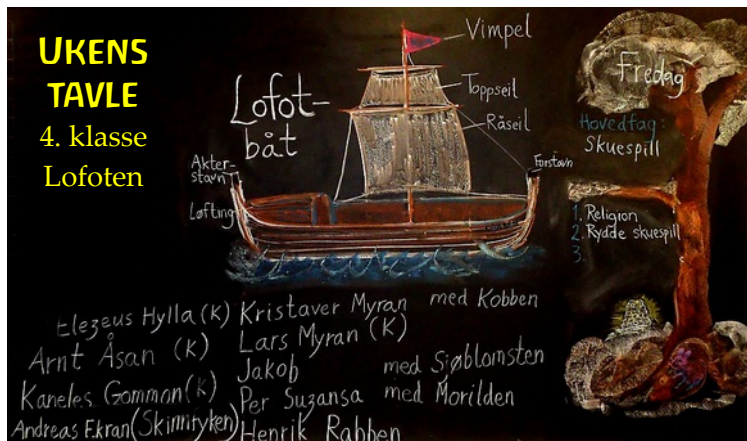 UKENS
TAVLE
4. klasse
Lofoten
Lofot-
båt
Vimpel
Toppseil
Råseil
Akter-
stavn
Forstavn
Løfting
Fredag
Hovedfag:
Skuespill
1. Religion
2. Rydde skuespill
3.
Elezeus Hylla (K)
Arnt Åsan (K)
Kaneles Gommon (K)
Andreas Ekran (Skinntyken)
Kristaver Myran med Kobben
Lars Myran (K)
Jakob med Sjøblomsten
Per Suzansa med Morilden
Henrik Rabben